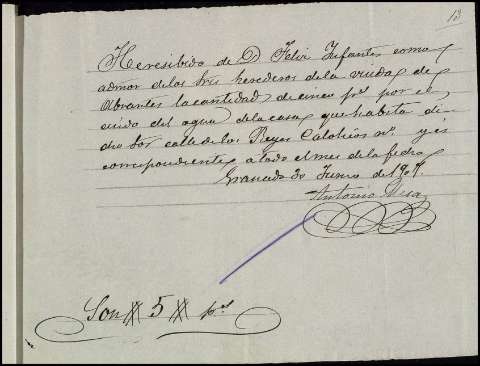 13
He resibido de D Felix Infantes como
admor de los tres herederos de la viuda de
Abrantes la cantidad de cinco pts por el
cuido del agua de la casa que habita di-
cho Sor calle de los Reyes Catolicos nº y es
correspondiente a todo el mes de la fecha
Granada 30 Junio de 1909.
Antonio Mesa
Son # 5 # pts